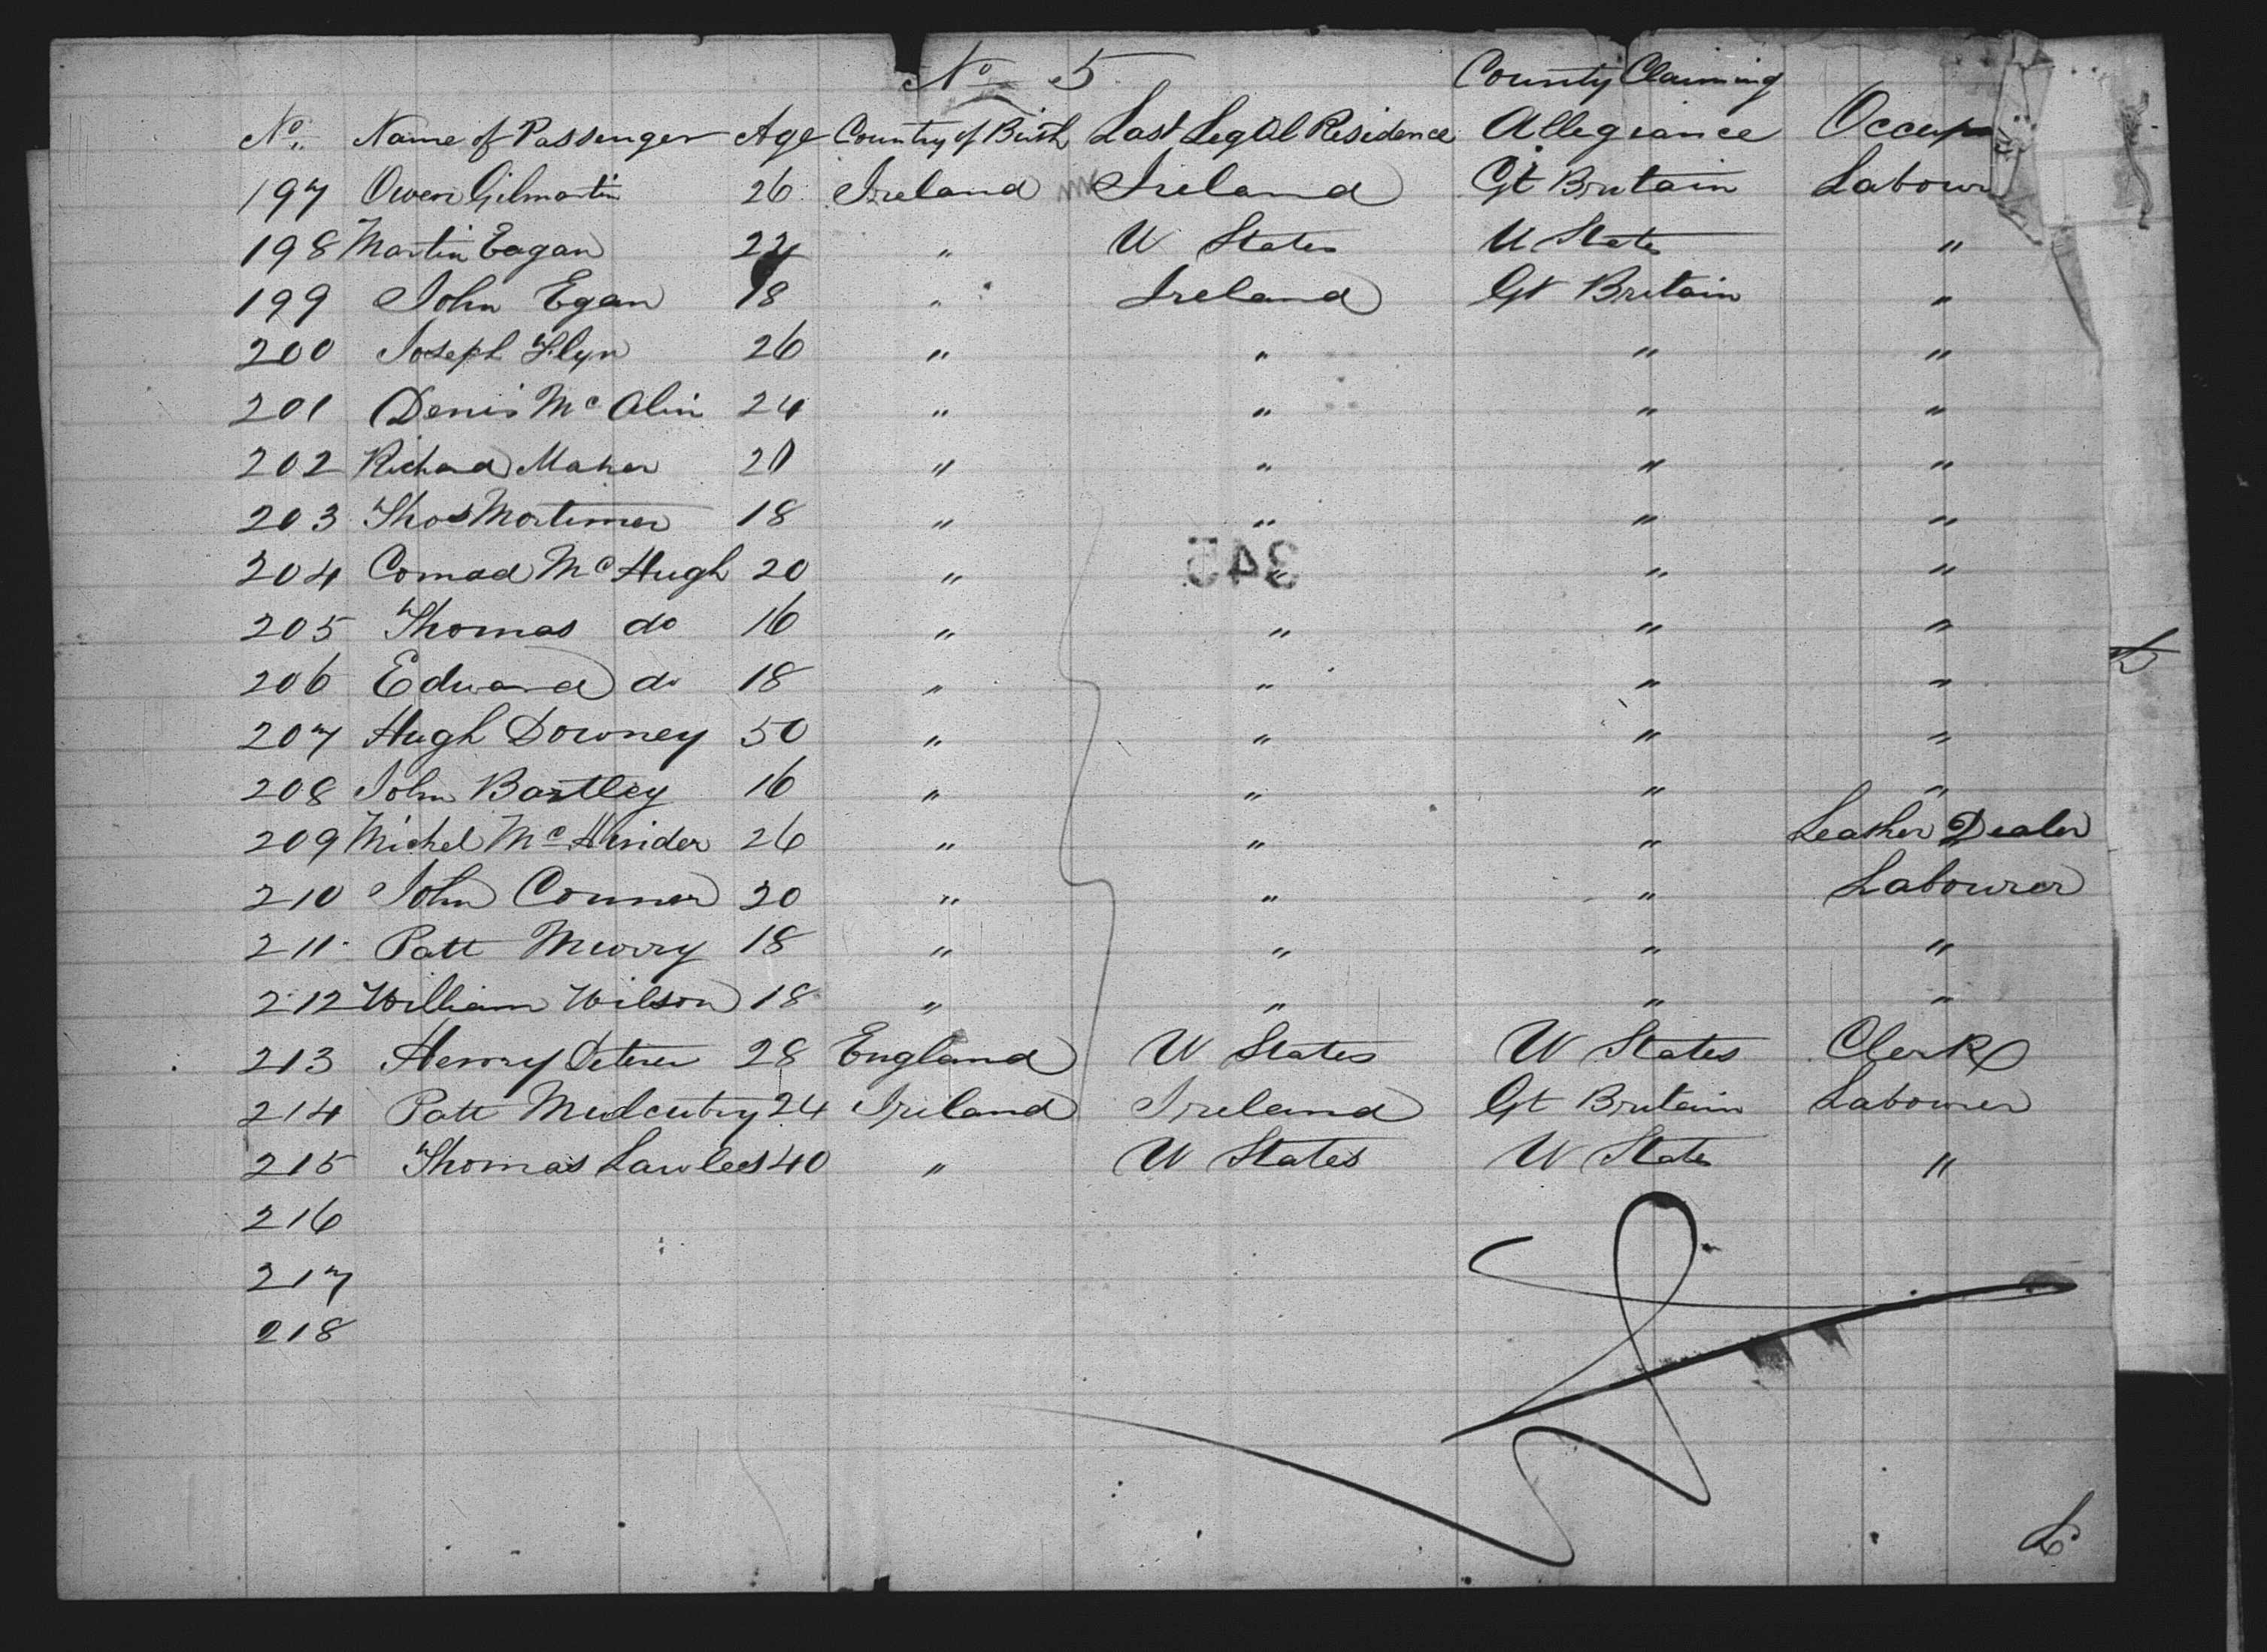 No 5
County Claiming
No. Name of Passenger Age Country of Birth Last Legal Residence Allegiance Occup
197 Owen Gilmartin 26 Ireland Ireland Gt Britain Labour
198 Martin Eagan 24 " U States U State "
199 John Egan 18 " Ireland Gt Britain "
200 Joseph Flyn 26 " " " "
201 Denis Mc Alin 24 " " " "
202 Richard Maher 20 " " " "
203 Thos Mortimer 18 " " " "
345
204 Conrad Mc Hugh 20 " " " "
205 Thomas do 16 " " " "
206 Edward do 18 " " " "
207 Hugh Downey 50 " " " "
208 John Bartley 16 " " " "
209 Michel Mc 26 " " " Leather Dealer
210 John Conner 20 " " " Labourer
211 Patt Murry 18 " " " "
212 William Wilson 18 " " " "
213 Henry 28 England U States U States Clerk
214 Patt 24 Ireland Ireland Gt Britain Labourer
215 Thomas Lawless 40 " U States U State "
216
217
218